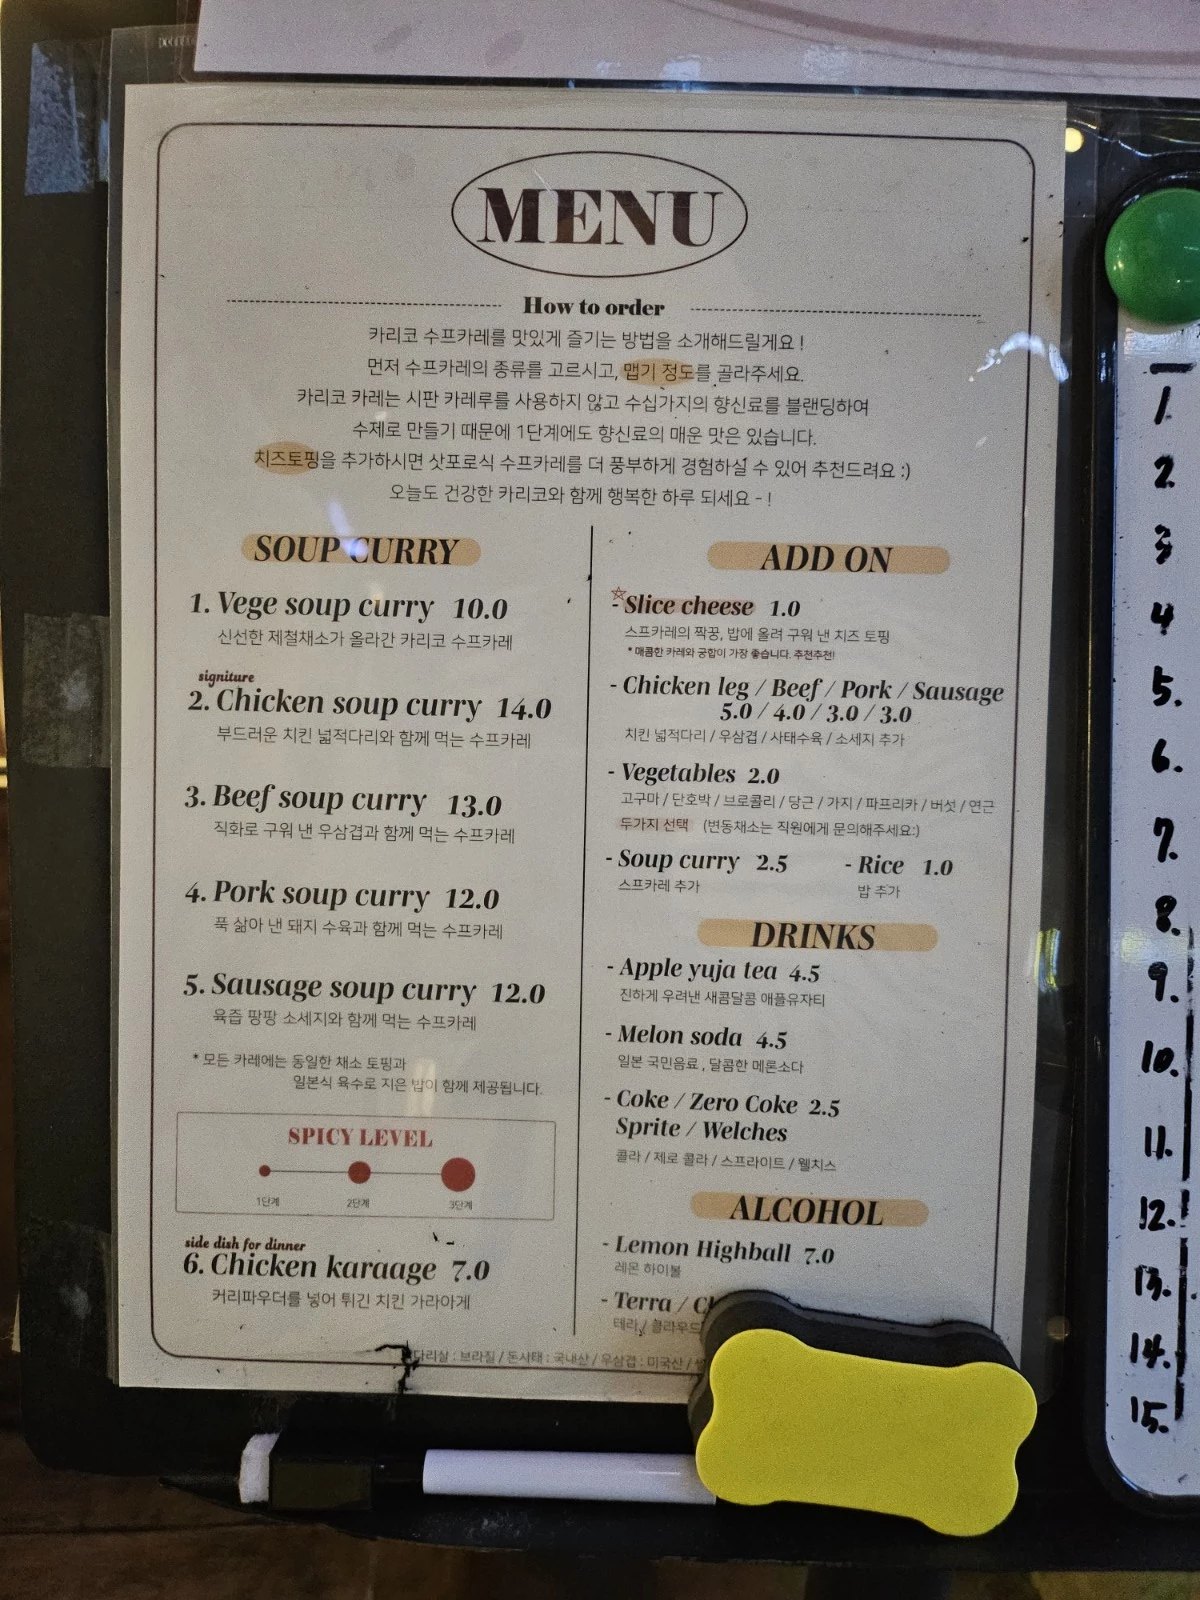 MENU
How to order
카리코 수프카레를 맛있게 즐기는 방법을 소개해드릴게요 !
먼저 수프카레의 종류를 고르시고, 맵기 정도를 골라주세요.
카리코 카레는 시판 카레루를 사용하지 않고 수십가지의 향신료를 블랜딩하여
수제로 만들기 때문에 1단계에도 향신료의 매운 맛은 있습니다.
치즈토핑을 추가하시면 삿포로식 수프카레를 더 풍부하게 경험하실 수 있어 추천드려요 :)
오늘도 건강한 카리코와 함께 행복한 하루 되세요 - !
SOUP CURRY
1. Vege soup curry 10.0
신선한 제철채소가 올라간 카리코 수프카레
signiture
2. Chicken soup curry 14.0
부드러운 치킨 넓적다리와 함께 먹는 수프카레
3. Beef soup curry 13.0
직화로 구워 낸 우삼겹과 함께 먹는 수프카레
4. Pork soup curry 12.0
푹 삶아 낸 돼지 수육과 함께 먹는 수프카레
5. Sausage soup curry 12.0
육즙 팡팡 소세지와 함께 먹는 수프카레
* 모든 카레에는 동일한 채소 토핑과
일본식 육수로 지은 밥이 함께 제공됩니다.
SPICY LEVEL
1단계 2단계 3단계
side dish for dinner
6. Chicken karaage 7.0
커리파우더를 넣어 튀긴 치킨 가라아게
ADD ON
- Slice cheese 1.0
스프카레의 짝꿍, 밥에 올려 구워 낸 치즈 토핑
* 매콤한 카레와 궁합이 가장 좋습니다. 추천추천!
- Chicken leg / Beef / Pork / Sausage
5.0 / 4.0 / 3.0 / 3.0
치킨 넓적다리 / 우삼겹 / 사태수육 / 소세지 추가
- Vegetables 2.0
고구마 / 단호박 / 브로콜리 / 당근 / 가지 / 파프리카 / 버섯 / 연근
두가지 선택 (변동채소는 직원에게 문의해주세요:)
- Soup curry 2.5 - Rice 1.0
스프카레 추가 밥 추가
DRINKS
- Apple yuja tea 4.5
진하게 우려낸 새콤달콤 애플유자티
- Melon soda 4.5
일본 국민음료 , 달콤한 메론소다
- Coke / Zero Coke 2.5
Sprite / Welches
콜라 / 제로 콜라 / 스프라이트 / 웰치스
ALCOHOL
- Lemon Highball 7.0
레몬 하이볼
- Terra /
테라 / 클라우드
다리살 : 브라질 / 돈사태 : 국내산 / 우삼겹 : 미국산 /
1.
2.
3
4
5.
6.
7.
8.
9.
10.
11.
12.
13.
14.
15.